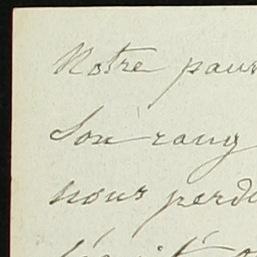 Notre pauv
Son rang
nous perd